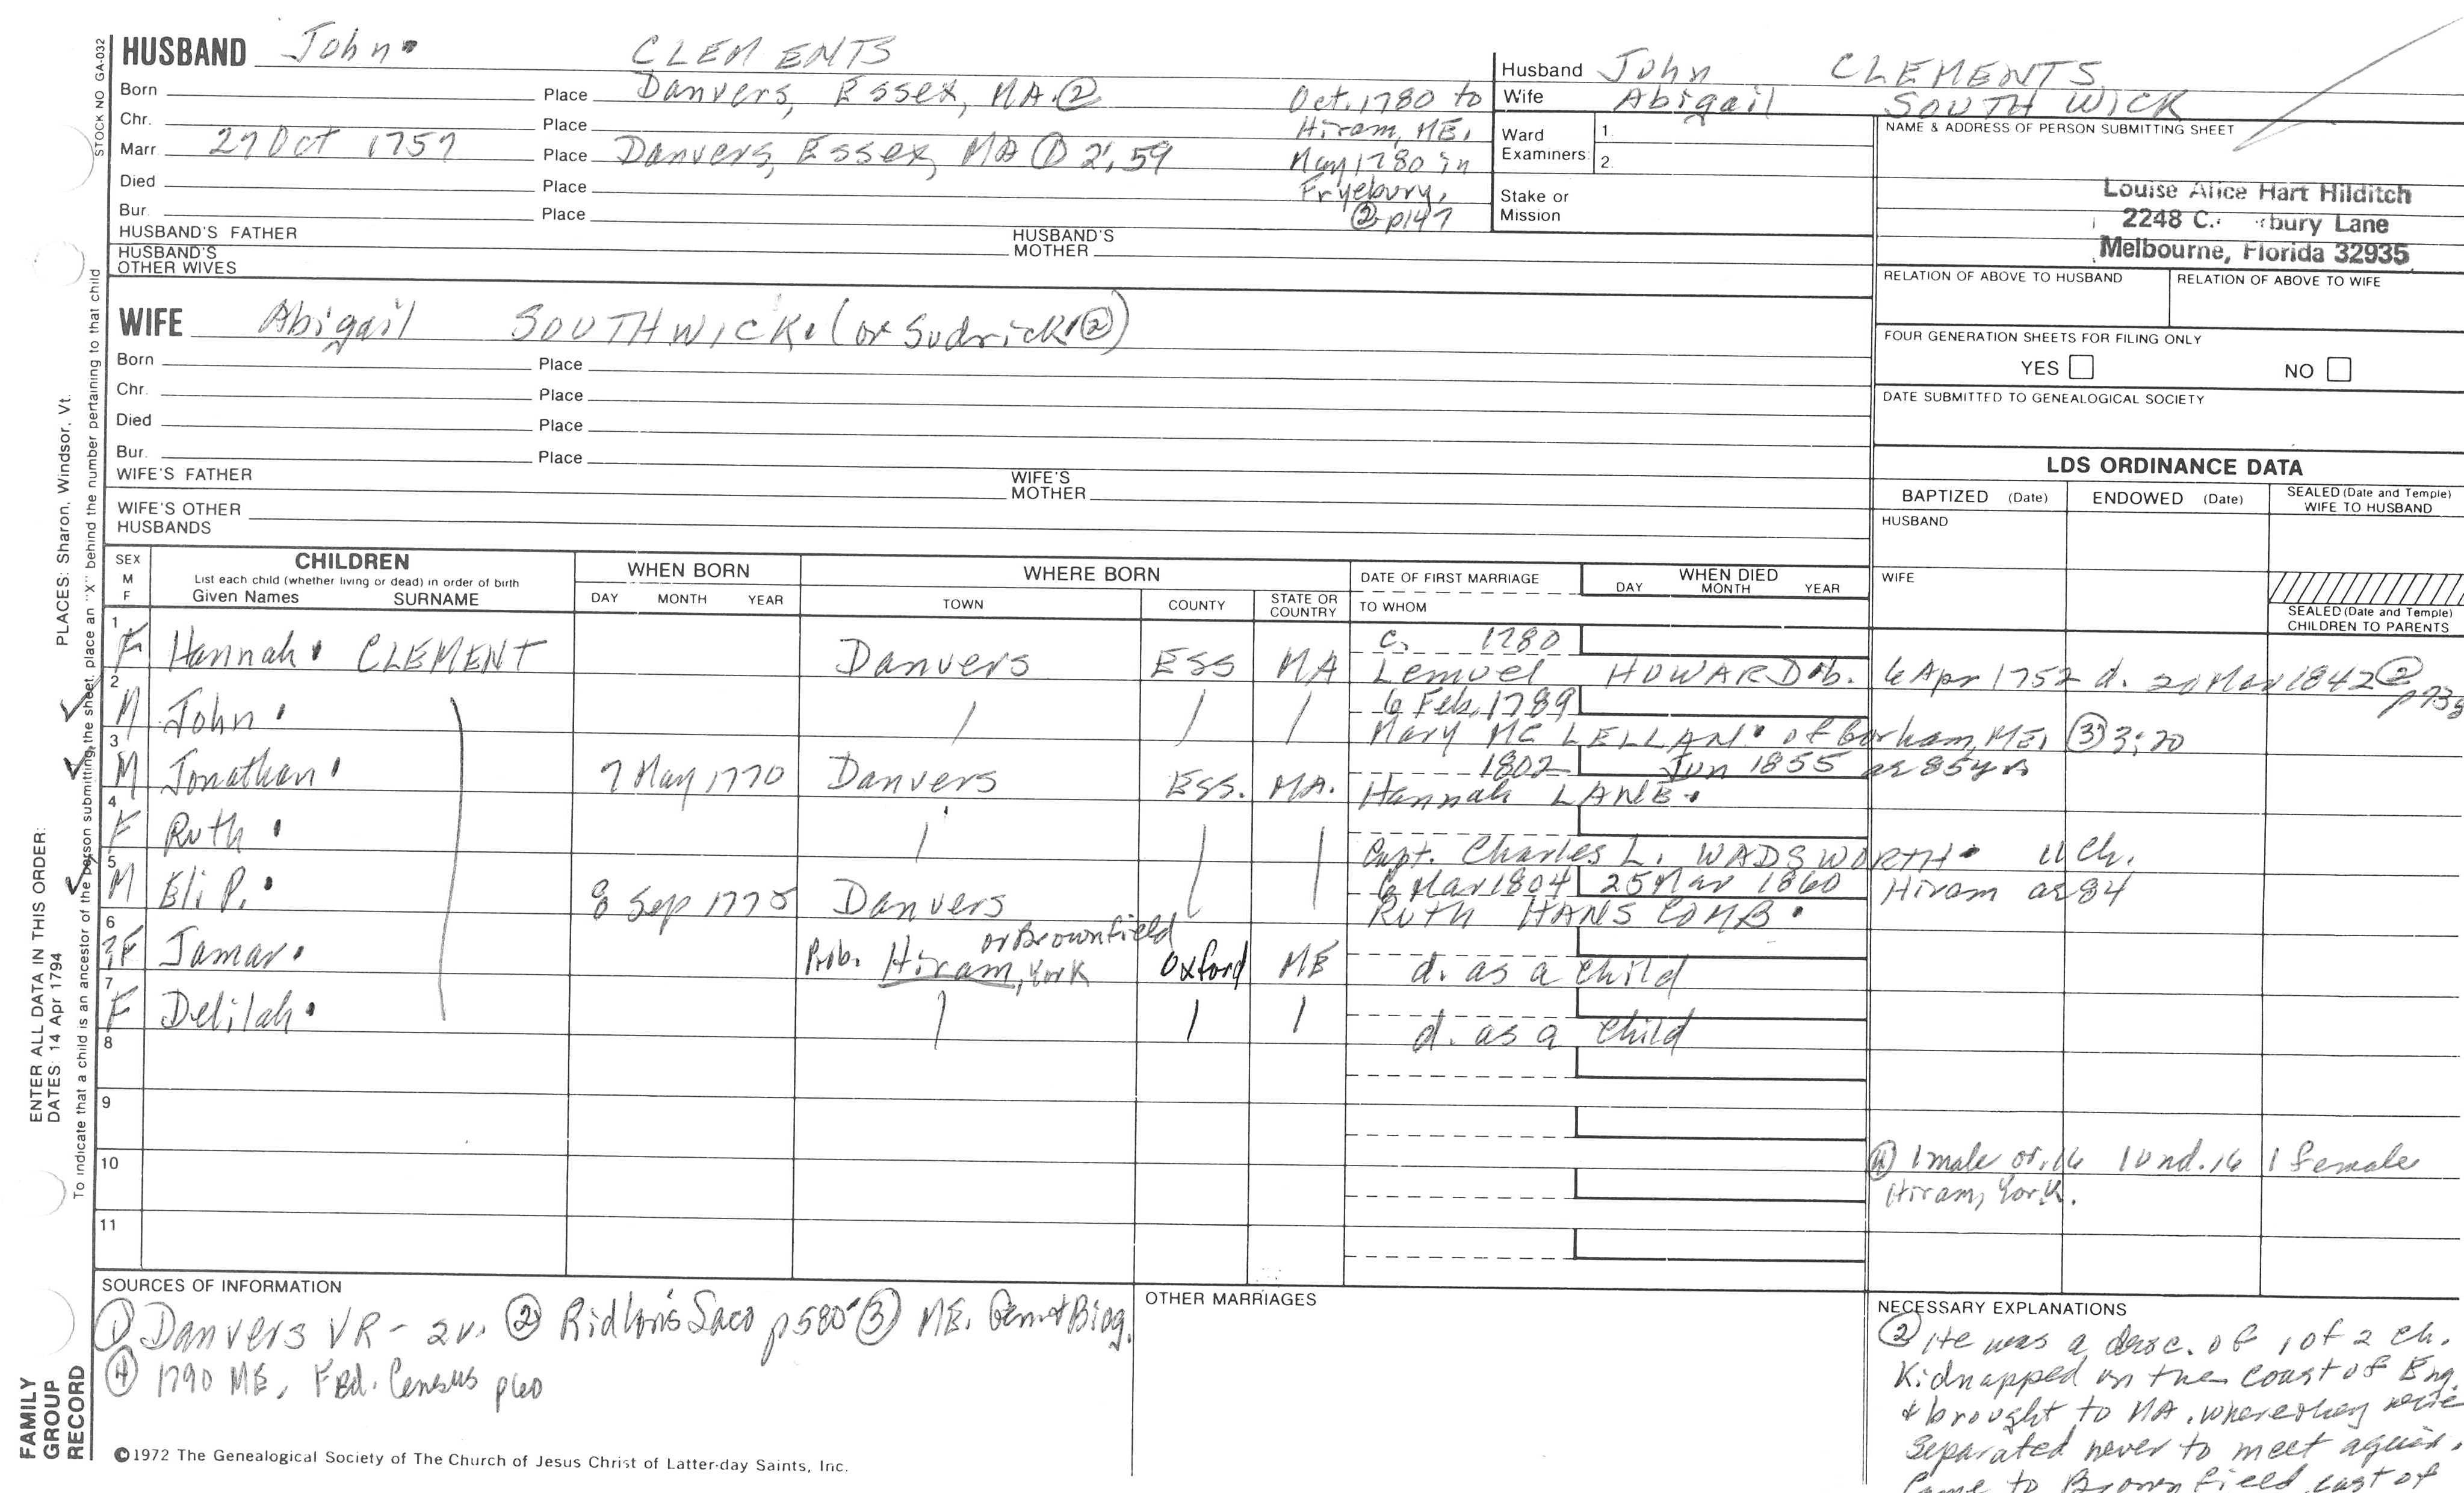 STOCK NO GA-032
HUSBAND John CLEMENTS
Born Place Danvers, Essex, MA. ② Oct. 1780 to
Chr. Place Hiram, ME,
Marr 27 Oct 1757 Place Danvers, Essex, MA ① 2:59 May 1780 in
Died Place Fryebury,
Bur. Place ② p147
HUSBAND'S FATHER HUSBAND'S MOTHER
HUSBAND'S OTHER WIVES
Husband John CLEMENTS
Wife Abigail SOUTHWICK
Ward Examiners: 1.
2.
Stake or Mission
NAME & ADDRESS OF PERSON SUBMITTING SHEET
Louise Alice Hart Hilditch
2248 C bury Lane
Melbourne, Florida 32935
RELATION OF ABOVE TO HUSBAND RELATION OF ABOVE TO WIFE
FOUR GENERATION SHEETS FOR FILING ONLY
YES NO
DATE SUBMITTED TO GENEALOGICAL SOCIETY
WIFE Abigail SOUTHWICK. (or Sudrick ②)
Born Place
Chr. Place
Died Place
Bur. Place
WIFE'S FATHER WIFE'S MOTHER
WIFE'S OTHER HUSBANDS
LDS ORDINANCE DATA
BAPTIZED (Date) ENDOWED (Date) SEALED (Date and Temple) WIFE TO HUSBAND
HUSBAND
WIFE
SEALED (Date and Temple) CHILDREN TO PARENTS
SEX M F CHILDREN List each child (whether living or dead) in order of birth Given Names SURNAME
WHEN BORN DAY MONTH YEAR
WHERE BORN TOWN COUNTY STATE OR COUNTRY
DATE OF FIRST MARRIAGE TO WHOM
WHEN DIED DAY MONTH YEAR
1 c. 1780
F Hannah CLEMENT Danvers Ess MA Lemuel HOWARD b. 6 Apr 1752 d. 20 Mar 1842 ②
2 6 Feb. 1789
M John Mary MC LELLAN of Gorham, ME, ③ 3:20
3 1802 Jun 1855 ae 85 yrs
M Jonathan 7 May 1770 Danvers Ess. MA. Hannah LANE.
4
F Ruth Capt. Charles L. WADSWORTH 11 ch.
5 6 Mar 1804 25 Mar 1860 Hiram ae 84
M Eli P. 8 Sep 1775 Danvers RUTH HANSCOMB
6 or Brownfield
?F Tamar Prob. Hiram, York Oxford ME d. as a child
7
F Delilah d. as a child
8
9
10 ④ 1 male or. 16 1 und. 16 1 female
Hiram, York.
11
SOURCES OF INFORMATION
① Danvers VR - 2v. ② Ridlon's Saco p 580 ③ ME. Gen & Biog.
④ 1790 ME, Fed. Census p60
OTHER MARRIAGES
NECESSARY EXPLANATIONS
② He was a desc. of 1 of 2 ch.
Kidnapped on the Coast of Eng.
& brought to MA. where they were
separated never to meet again.
Came to Brownfield, east of
©1972 The Genealogical Society of The Church of Jesus Christ of Latter-day Saints, Inc.
FAMILY GROUP RECORD
ENTER ALL DATA IN THIS ORDER:
DATES: 14 Apr 1794
PLACES: Sharon, Windsor, Vt.
To indicate that a child is an ancestor of the person submitting the sheet, place an "X" behind the number pertaining to that child